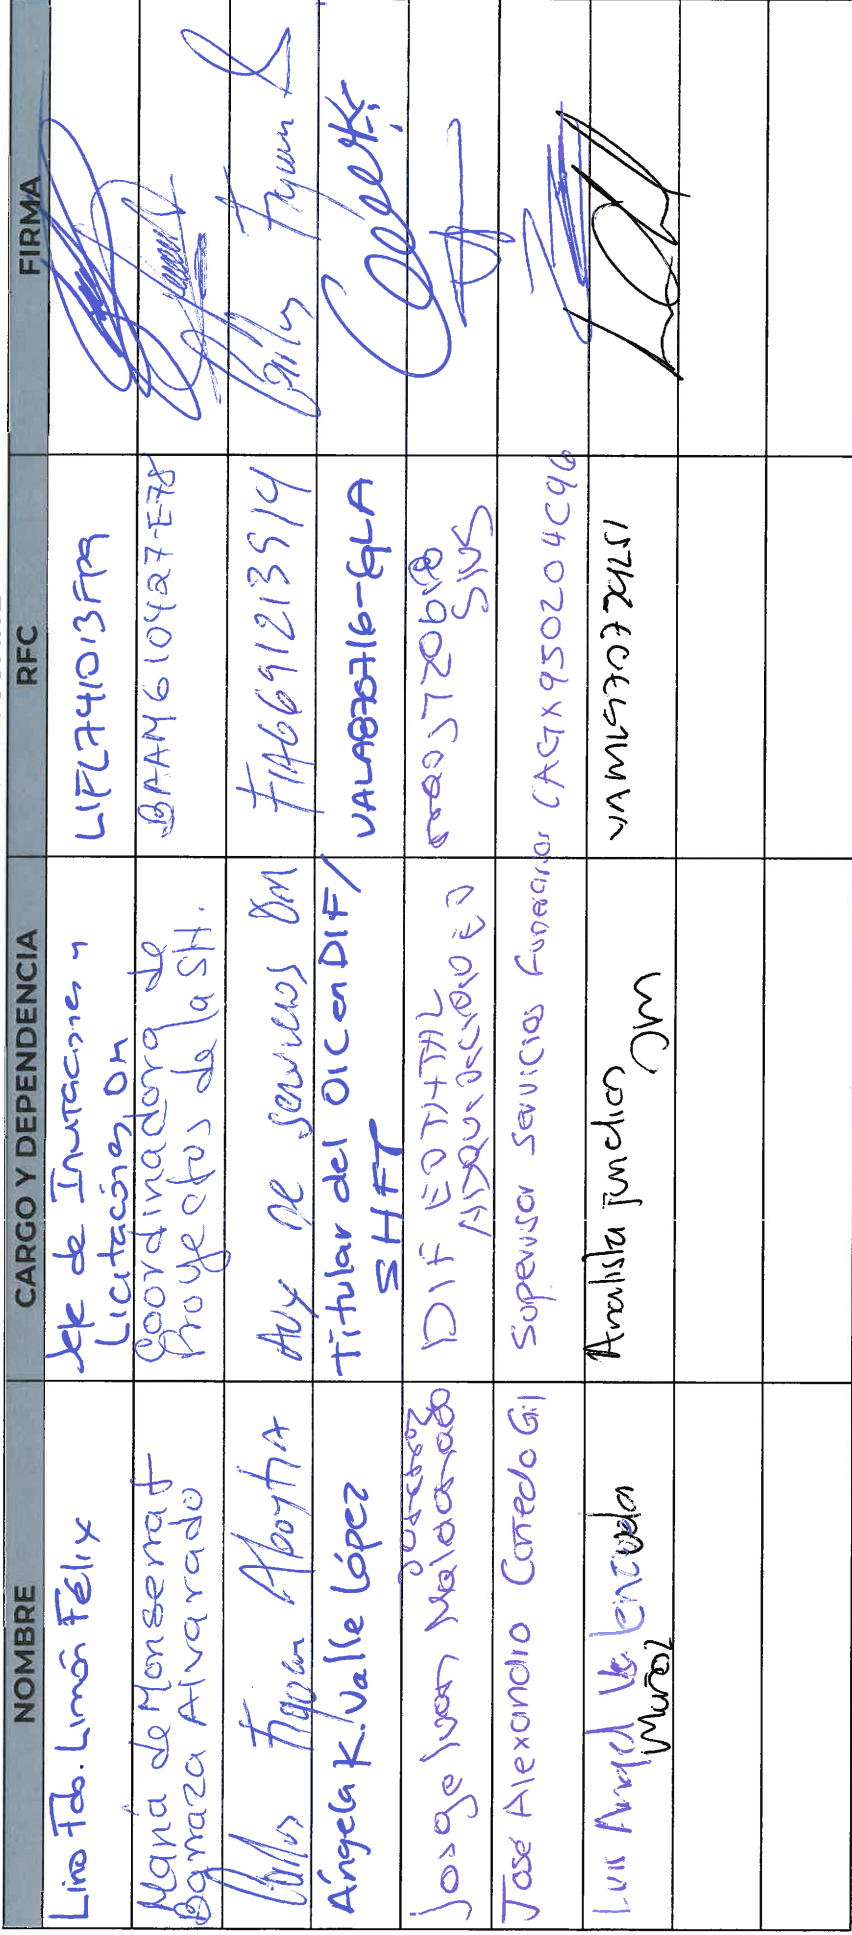 NOMBRE CARGO Y DEPENDENCIA RFC FIRMA
Lino Fdo. Limón Félix
Jefe de Invitaciones y
Licitaciones OM
LIFL741013FP9
María de Monserrat
Barraza Alvarado
Coordinadora de
Proyectos de la SH.
BAAM610427-E78
Carlos Figueroa Aboytia
Aux de servicios OM
FIA6691213914
Carlos Figueroa
Ángela K. Valle López
Titular del OIC en DIF/
SHFT
VALA870716-GLA
Jorge Ivan Maldonado
DIF
Jose Alexandro Corredo Gil
Supervisor Servicios Funerarios
CAGX950204C96
Luis Angel Valenzuela
Muñoz
Analista jurídico
OM